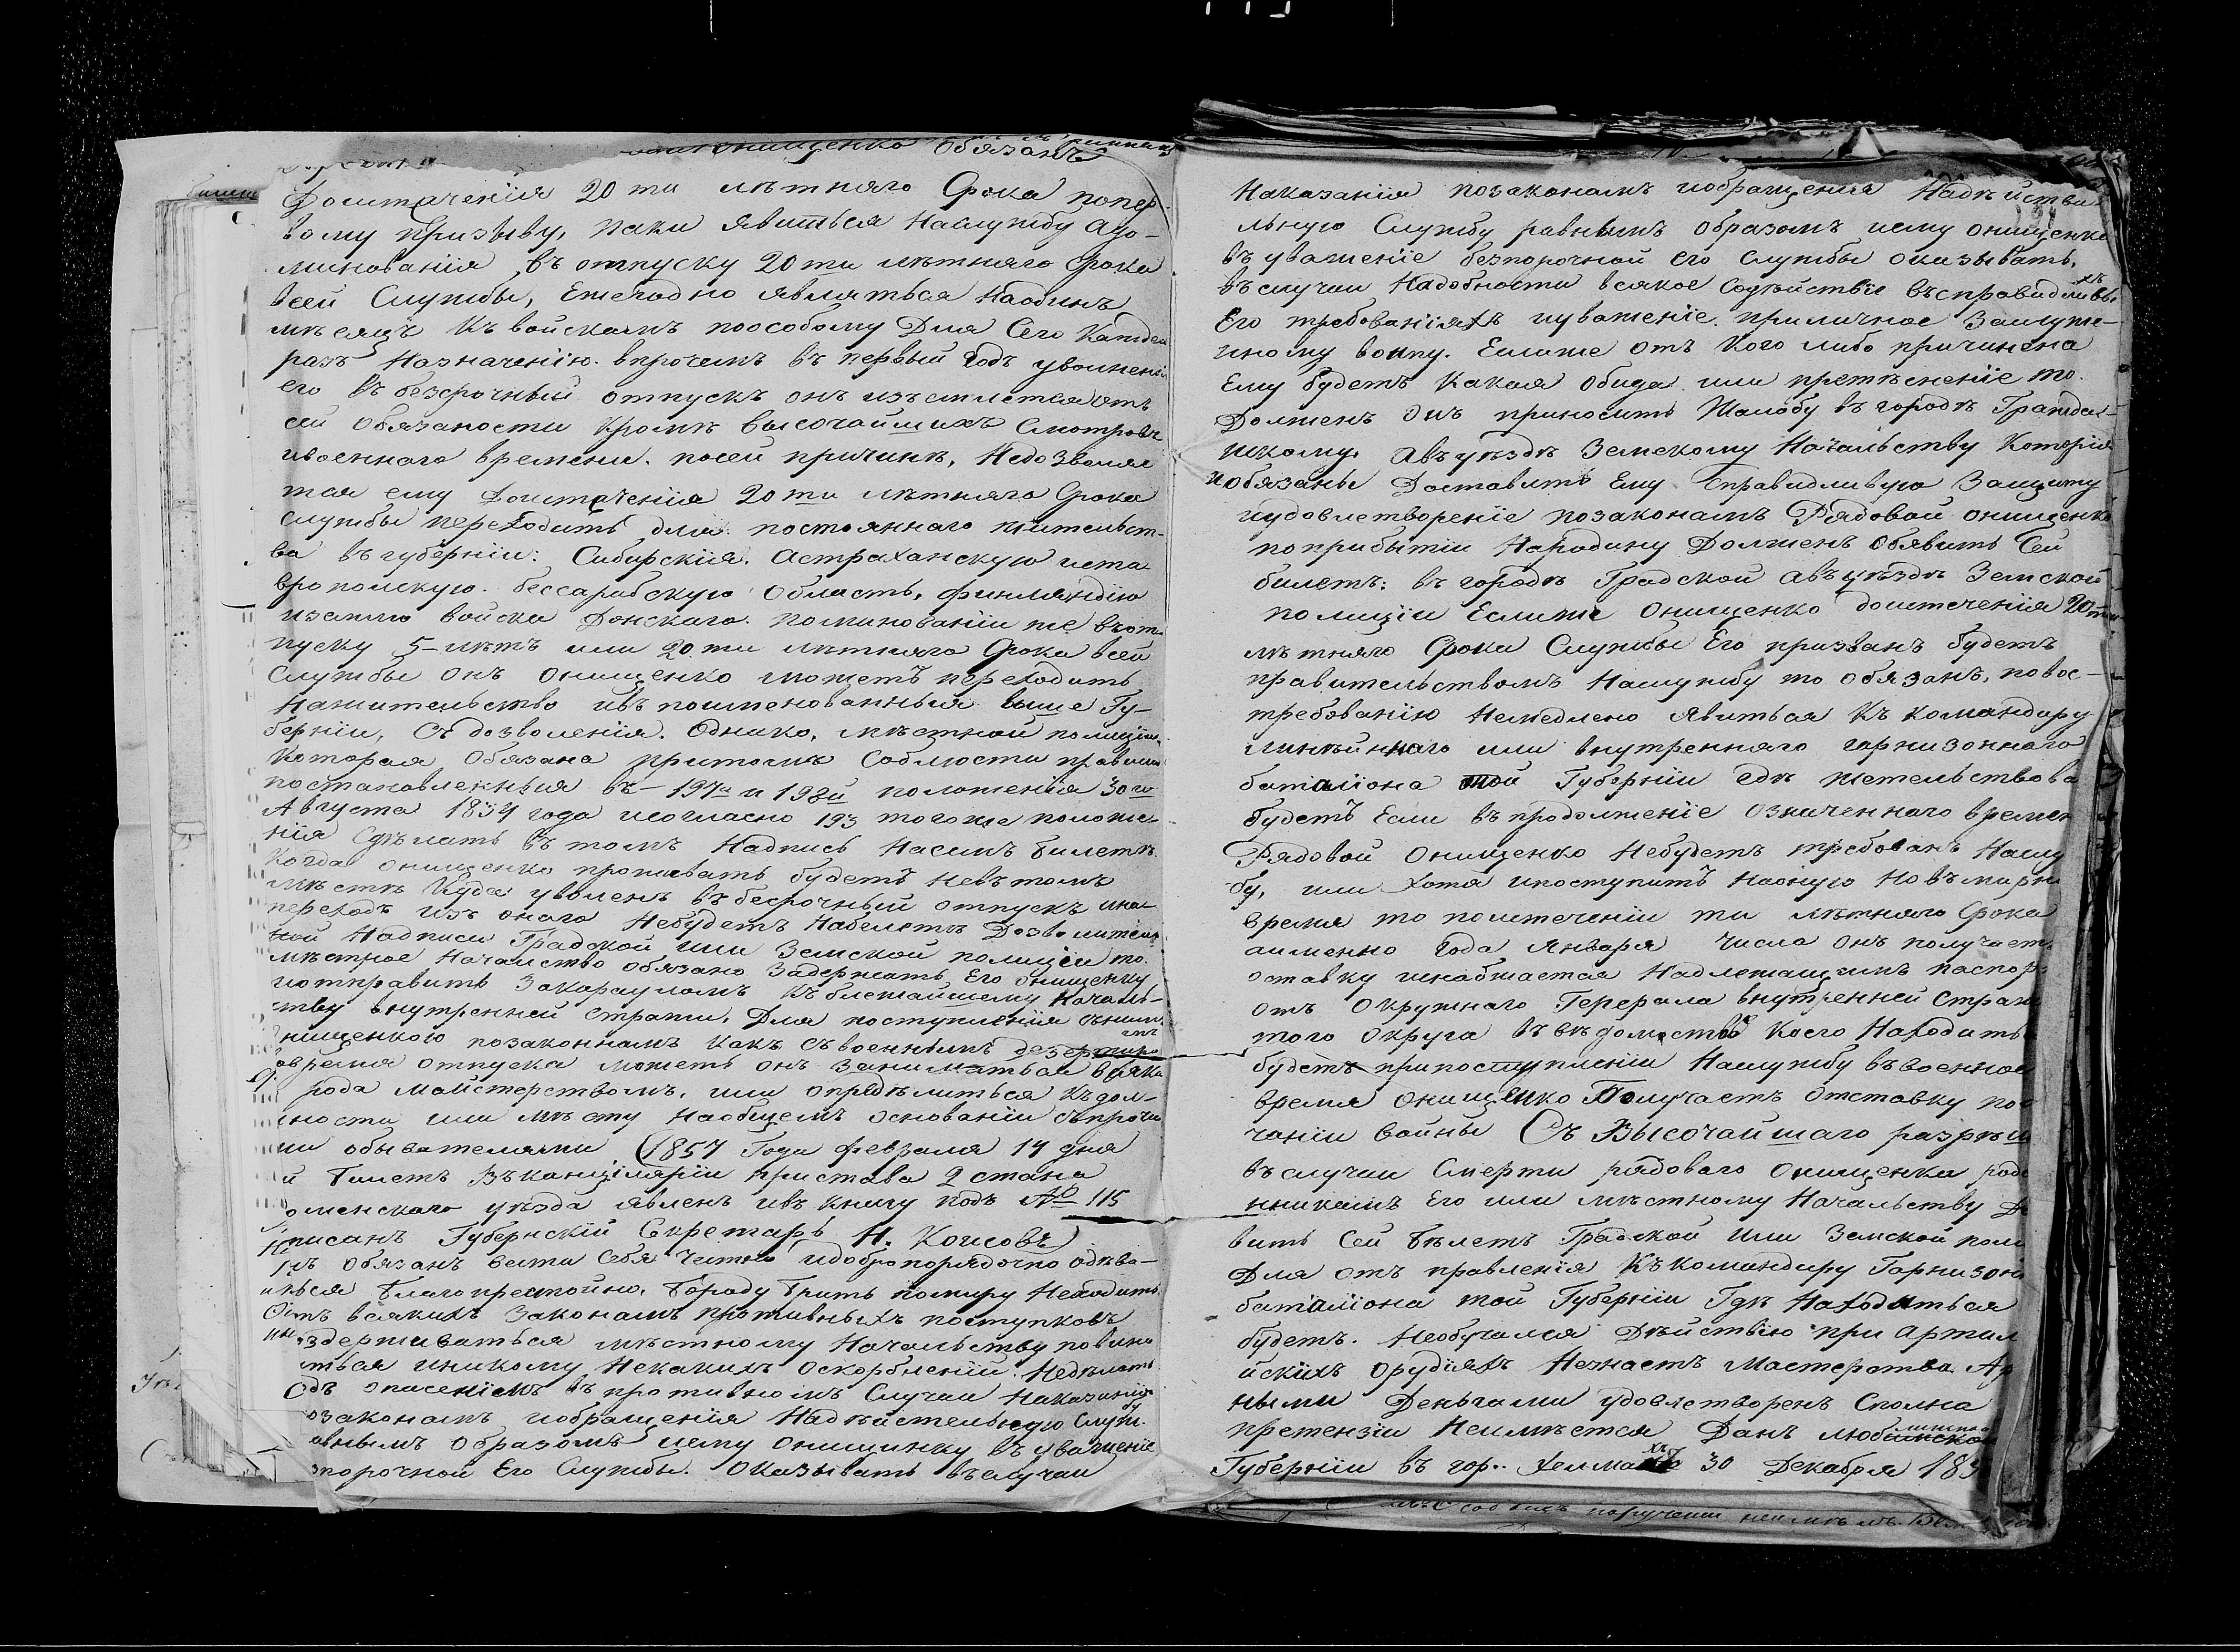 Онищенко обязанъ
Доистеченія 20 ти лѣтняго Срока попер-
вому призыву, паки явиться Наслужбу адо-
минованія въ отпуску 20 ти лѣтняго Срока
всей Службы, Ежегодно являться Наодинъ
мѣсяцъ къ войскамъ поособому Для Сего Каждой
разъ Назначенію. впрочемъ въ первый Годъ увольненія
его въ безсрочный отпускъ онъ изъемлется отъ
сей обязаности Кромѣ высочайшихъ Смотровъ
ивоеннаго времени. посей причинѣ, Недозволяе
тся ему Доистеченія 20 ти лѣтняго Срока
службы переходить для постояннаго жительст-
ва въ губерніи: Сибирскія. Астраханскую иста
вропольскую. бессарабскую Область, финляндію
иземлю войска Донскаго. поминованіи же вьот-
пуску 5-лѣтъ или 20 ти лѣтняго Срока всей
Службы онъ Онищенко можетъ переходить
Нажительство ивъ поименованныя выше Гу-
берніи, Съ дозволенія. Однако, мѣстной полиціи
Которая Обязана притомъ Соблюсти правила
постановленныя въ - 197й и 198й положенія 30 го
Августа 1834 года исогласно 193 тогоже положе-
нія Сдѣлать въ томъ Надпись Насемъ билетѣ
Когда онищенко проживать будетъ невъ томъ
мѣстѣ Куда уволенъ въ бесрочный отпускъ ина
переходъ изъ онаго Небудетъ Набелетѣ Дозволитель
ной Надписи Градской или Земской полиціи то.
мѣстное Началство обязано Задержать Его онищенку
иотправить Закарауломъ къ ближайшему Началь-
ству внутренней стражи, Для поступленія сънимъ
нищенкою позаконнамъ какъ съвоеннымъ дезертиро
время отпуска можетъ онъ Заниматься всяка
рода майстерствомъ, или опредѣлиться Къдол-
жности или мѣсту наобщемъ основаніи съпрочи
ми обывателями (1857 Года февраля 14 дня
й билетъ въканцеляріи пристава 2 стана
оменскаго уѣзда явленъ ивъ книгу подъ № 115
писанъ Губернскій Секретарь Н. Коисовъ)
нъ обязанъ вести себя Честно идобропорядочно одѣва-
ться Благопрестойно. Бороду Брить помиру Неходить
Отъ всякихъ Законамъ противныхъ поступковъ
здерживаться мѣстному Начальству повино
ться иникому Некакихъ оскорбленій. Недѣлать
одъ опасеніемъ въ противномъ Случаи Наказанія
озаконамъ иобращенія Надѣйстельную служ.бу
авнымъ образомъ иему онищинку въ уваженіе
зпорочной Его Службы. Оказывать въслучаи
Наказанія позаконамъ иобращенія Надѣйстви
льную Службу равнымъ образомъ иему онищенко
въ уваженіе безпорочной его Службы оказывать,
въслучаи Надобности всякое Содѣйствіе въсправидливыхъ
Его требованіяхъ иуваженіе. приличное Заслуже-
нному воину. Еслиже отъ Кого либо причинена
Ему будетъ Какая обида или претѣсненіе то.
Долженъ онъ приносить Жалобу въ городѣ Граждан-
нскому, авъуѣздѣ Земскому Начальству Которія
иобязаны Доставить Ему Справидливую Защиту
иудовлетвореніе позаконамъ Рядовой онищенко
поприбытіи Народину Долженъ Обявить Сей
билетъ: въ городѣ Градской авъуѣздѣ Земской
полиціи Еслиже Онищенко доистеченія 20 ти
лѣтняго Срока Службы Его призванъ будетъ
правительствомъ Наслужбу то обязанъ, повос-
требованію Немедлено явиться Къ командиру
линѣйннаго или внутренняго гарнизоннаго
баталіона той Губерніи гдѣ жетельствова
будетъ Если въ продолженіе означеннаго времен
Рядовой Онищенко Небудетъ требованъ Наслу
бу, или хотя ипоступитъ наоную Новъ мирн
время то поистеченіи ти лѣтняго Срока
аименно Года Января Числа онъ получаетъ
оставку иснабжается Надлежащимъ паспор
отъ Окружнаго Генерала внутренней Страж
того Округа въ вѣдомствѣ Коего Находить
будетъ припоступленіи Наслужбу въвоенное
время Онищенко Получаетъ Отставку по
чаніи войны Съ Высочайшаго разрѣш
въслучаи Смерти рядоваго Онищенка род
нникамъ Его или мѣстному Начальству
вить Сей билетъ Градской или Земской поли
Для отъ правленія Къкомандиру Гарнизон
баталіона той Губерніи Гдѣ Находиться
будетъ. Необучался Дѣйствію при Артил
йскихъ Орудіяхъ Незнаетъ Мастерства
ными Деньгами Удовлетворенъ Сполна
претензіи Неимѣется Данъ Люблинской
Губерніи въ гор.. Хелмахъ 30 Декабря 183